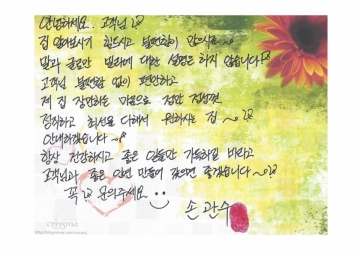 안녕하세요. 고객님
집 알아보시기 힘드시고 불편함이 많으시죠~
말과 글로만 빌라에 대한 설명은 하지 않습니다!
고객님 불편함 없이 편안하고
제 집 장만하는 마음으로 정말 정성껏
정직하고 최선을 다해서 원하시는 집 ~
안내하겠습니다 ~
항상 건강하시고 좋은 일들만 가득하길 바라고
고객님과 좋은 인연 만들어 갔으면 좋겠습니다~?
꼭 문의주세요
손관수